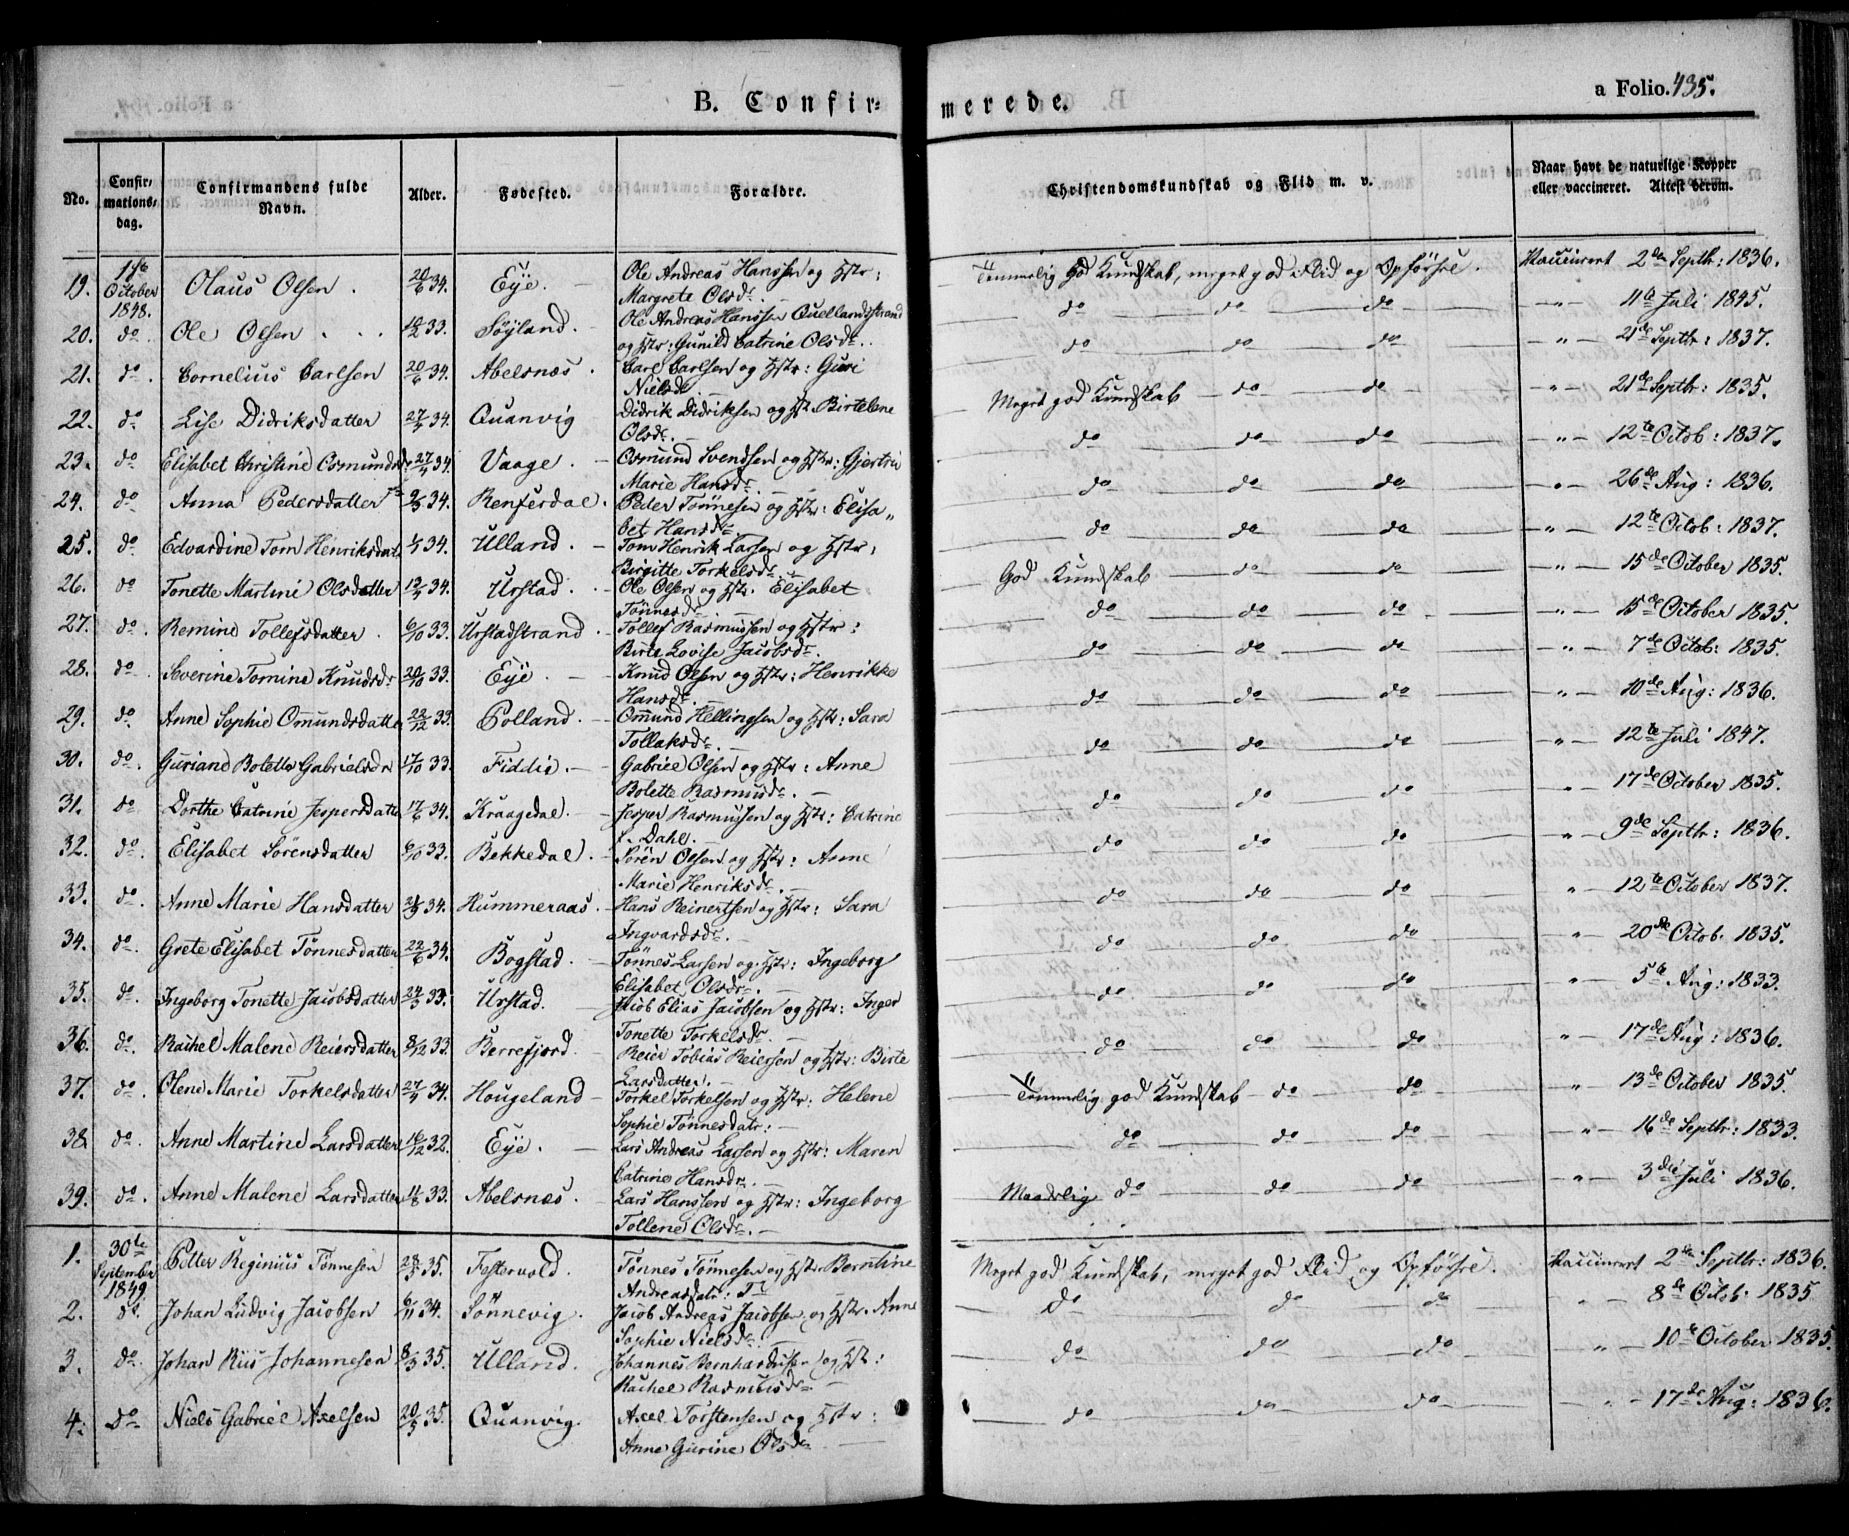 B. Confir-
merede.
a Folio. 435.
No.
Confir-
mations-
dag.
Confirmandens fulde
Navn.
Alder.
Fødested.
Forældre.
Christendomskundskab og Flid m. v.
Naar havt de naturlige Kopper
eller vaccineret. Attest derom.
19. October 1848. Olaus Olsen. 20/6 34. Eÿe. Ole Andreas Hanssen og Hstr:
Margrete Olsdr. Temmelig god Kundskab, meget god Flid og Opførsel. Vaccinert 2de Septbr: 1836.
20. do. Ole Olsen 33. Søÿland. Ole Andreas Hanssen Quellandsstrand
og Hstr: Gunild Catrine Olsdr. do do do 11te Juli 1845.
21. do. Cornelius Carlsen 20/6 34. Abelsnæs. Carl Carlsen og Hstr: Guri
Nielsdr. do do do 21de Septbr: 1837.
22. do Lise Didriksdatter 34. Quanvig Didrik Didriksen og Hstr Birtelene
Olsdr. Meget god Kundskab do do 21de Septbr: 1835.
23. do Elisabet Christine Osmundsd. 34. Vaage. Osmund Svendsen og Hstr: Gjertru
Marie Hansdr. do do do 12te Octob: 1837.
24. do Anna Pedersdatter 34. Renferdal. Peder Tønnesen og Hstr: Elisa„
bet Hansdr. do do do 26de Aug: 1836.
25. do. Edvardine Tom Henriksdat 34. Ulland. Tom Henrik Larsen og Hstr:
Birgitte Torkelsdr. do do do 12te Octob: 1837.
26. do Tonette Martine Olsdatter 34. Urstad. Ole Olsen og Hstr. Elisabet
Tønnesdr. God Kundskab do do 15de October 1835.
27. do. Remine Tollefsdatter. 6/10 33. Urstadstrand. Tollef Rasmussen og Hstr:
Birte Lovise Jacobsdr. do do do 15de October 1835.
28. do. Severine Tomine Knudsdr 20/10 33. Eÿe. Knud Olsen og Hstr: Henrikke
Hansdr. do do do 7de Octob: 1835.
29. do. Anne Sophie Omundsdatter 22/12 33. Polland. Omund Hellingsen og Hstr: Sara
Tollaksdr. do do do 10de Aug: 1836.
30. do. Guriane Bolette Gabrielsdr 17/10 33. Fiddie. Gabriel Olsen og Hstr: Anne
Bolette Rasmusdr. do do do 12te Juli 1847.
31. do. Dorthe Catrine Jespersdatte 17/6 34. Kraagedal. Jesper Rasmussen og Hstr: Catrine
f. Dahl. do do do 17de October 1835.
32. do. Elisabet Sørensdatter 6/10 33. Bekkedal. Søren Olsen og Hstr: Anne
Marie Henriksdr. do do do 9de Septbr: 1836.
33. do. Anne Marie Hansdatter 34. Hummeraas. Hans Reinertsen og Hstr: Sara
Ingvardsdr. do do do 12te October 1837.
34. do. Grete Elisabet Tønnesdatter 22/6 34. Bogstad. Tønnes Larsen og Hstr: Ingeborg
Elisabet Olsdr. do do do 20de Octob. 1835.
35. do. Ingeborg Tonette Jacobsdatter 24/3 33. Urstad. Jacob Elias Jacobsen og Hstr: Inger
Tonette Torkelsdr. do do do 5te Aug: 1833.
36. do. Rachel Malene Reiersdatter 8/12 33. Berrefjord. Reier Tobias Reiersen og Hstr: Birte
Larsdatter. do do do 17de Aug: 1836.
37. do. Olene Marie Torkelsdatter 34. Hougeland Torkel Torkelsen og Hstr: Helene
Sophie Tønnesdatr: Temmelig god Kundskab do do 13de October 1835.
38. do. Anne Martine Larsdatter 16/12 32. Eÿe. Lars Andreas Larsen og Hstr: Maren
Catrine Hansdr. do do do 16de Septbr: 1833.
39. do. Anne Malene Larsdatter 33. Abelsnæs. Lars Hanssen og Hstr: Ingeborg
Tollene Olsdr. Maadelig do do do 3die Juli 1836.
1. 30te September 1849 Petter Reginius Tønnesen 35. Festervold. Tønnes Tønnesen og Hstr Berntine
Andreasdatr: Meget god Kundskab, meget god Flid og Opførsel. Vaccinert 2de Septbr: 1836.
2. do. Johan Ludvig Jacobsen 6/11 34. Sønnevig. Jacob Andreas Jacobsen og Hstr. Anne
Sophie Nielsdr. do do do 8de Octob. 1835
3. do. Johan Rüs Johannesen 8/3 35. Ulland. Johannes Bernhardusen og Hstr:
Rachel Rasmusdr do do do 10de October 1835.
4. Do Niels Gabriel Axelsen 20/3 35. Quanvig. Axel Torstensen og Hstr:
Anne Gurine Olsdr do do do 17de Aug: 1836.